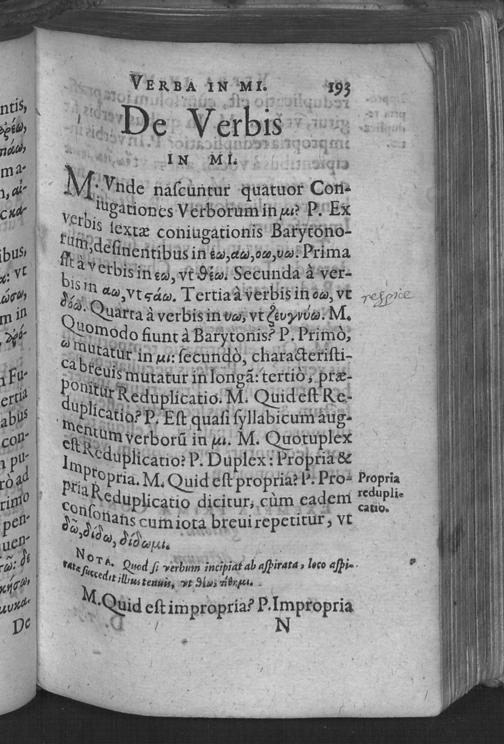 VERBA IN MI. 193
De Verbis
IN MI.
M. Vnde nascuntur quatuor Con-
iugationes Verborum in μι? P. Ex
verbis sextæ coniugationis Barytono-
rum, desinentibus in έω, αω, οω, υω. Prima
fit à verbis in έω, vt θέω. Secunda à ver-
bis in αω, vt ϛάω. Tertia à verbis in οω, vt
δόω. Quarta à verbis in υω, vt ζευγνύω. M.
respice
Quomodo fiunt à Barytonis? P. Primò,
ω mutatur in μι: secundò, characteristi-
ca breuis mutatur in longã: tertiò, præ-
ponitur Reduplicatio. M. Quid est Re-
duplicatio? P. Est quasi syllabicum aug-
mentum verborũ in μι. M. Quotuplex
est Reduplicatio? P. Duplex: Propria &
Impropria. M. Quid est propria? P. Pro-
pria Reduplicatio dicitur, cùm eadem
consonans cum iota breui repetitur, vt
δῶ, δίδω, δίδωμι.
Propria
redupli-
catio.
NOTA. Quod si verbum incipiat ab aspirata, loco aspi-
ratæ succedit illius tenuis, vt θέω, τίθημι.
M. Quid est impropria? P. Impropria
N
ntis,
ibus,
m in
n Fu-
ertia
abus
con-
n pu-
rò ad
rimo
pen-
quen-
De